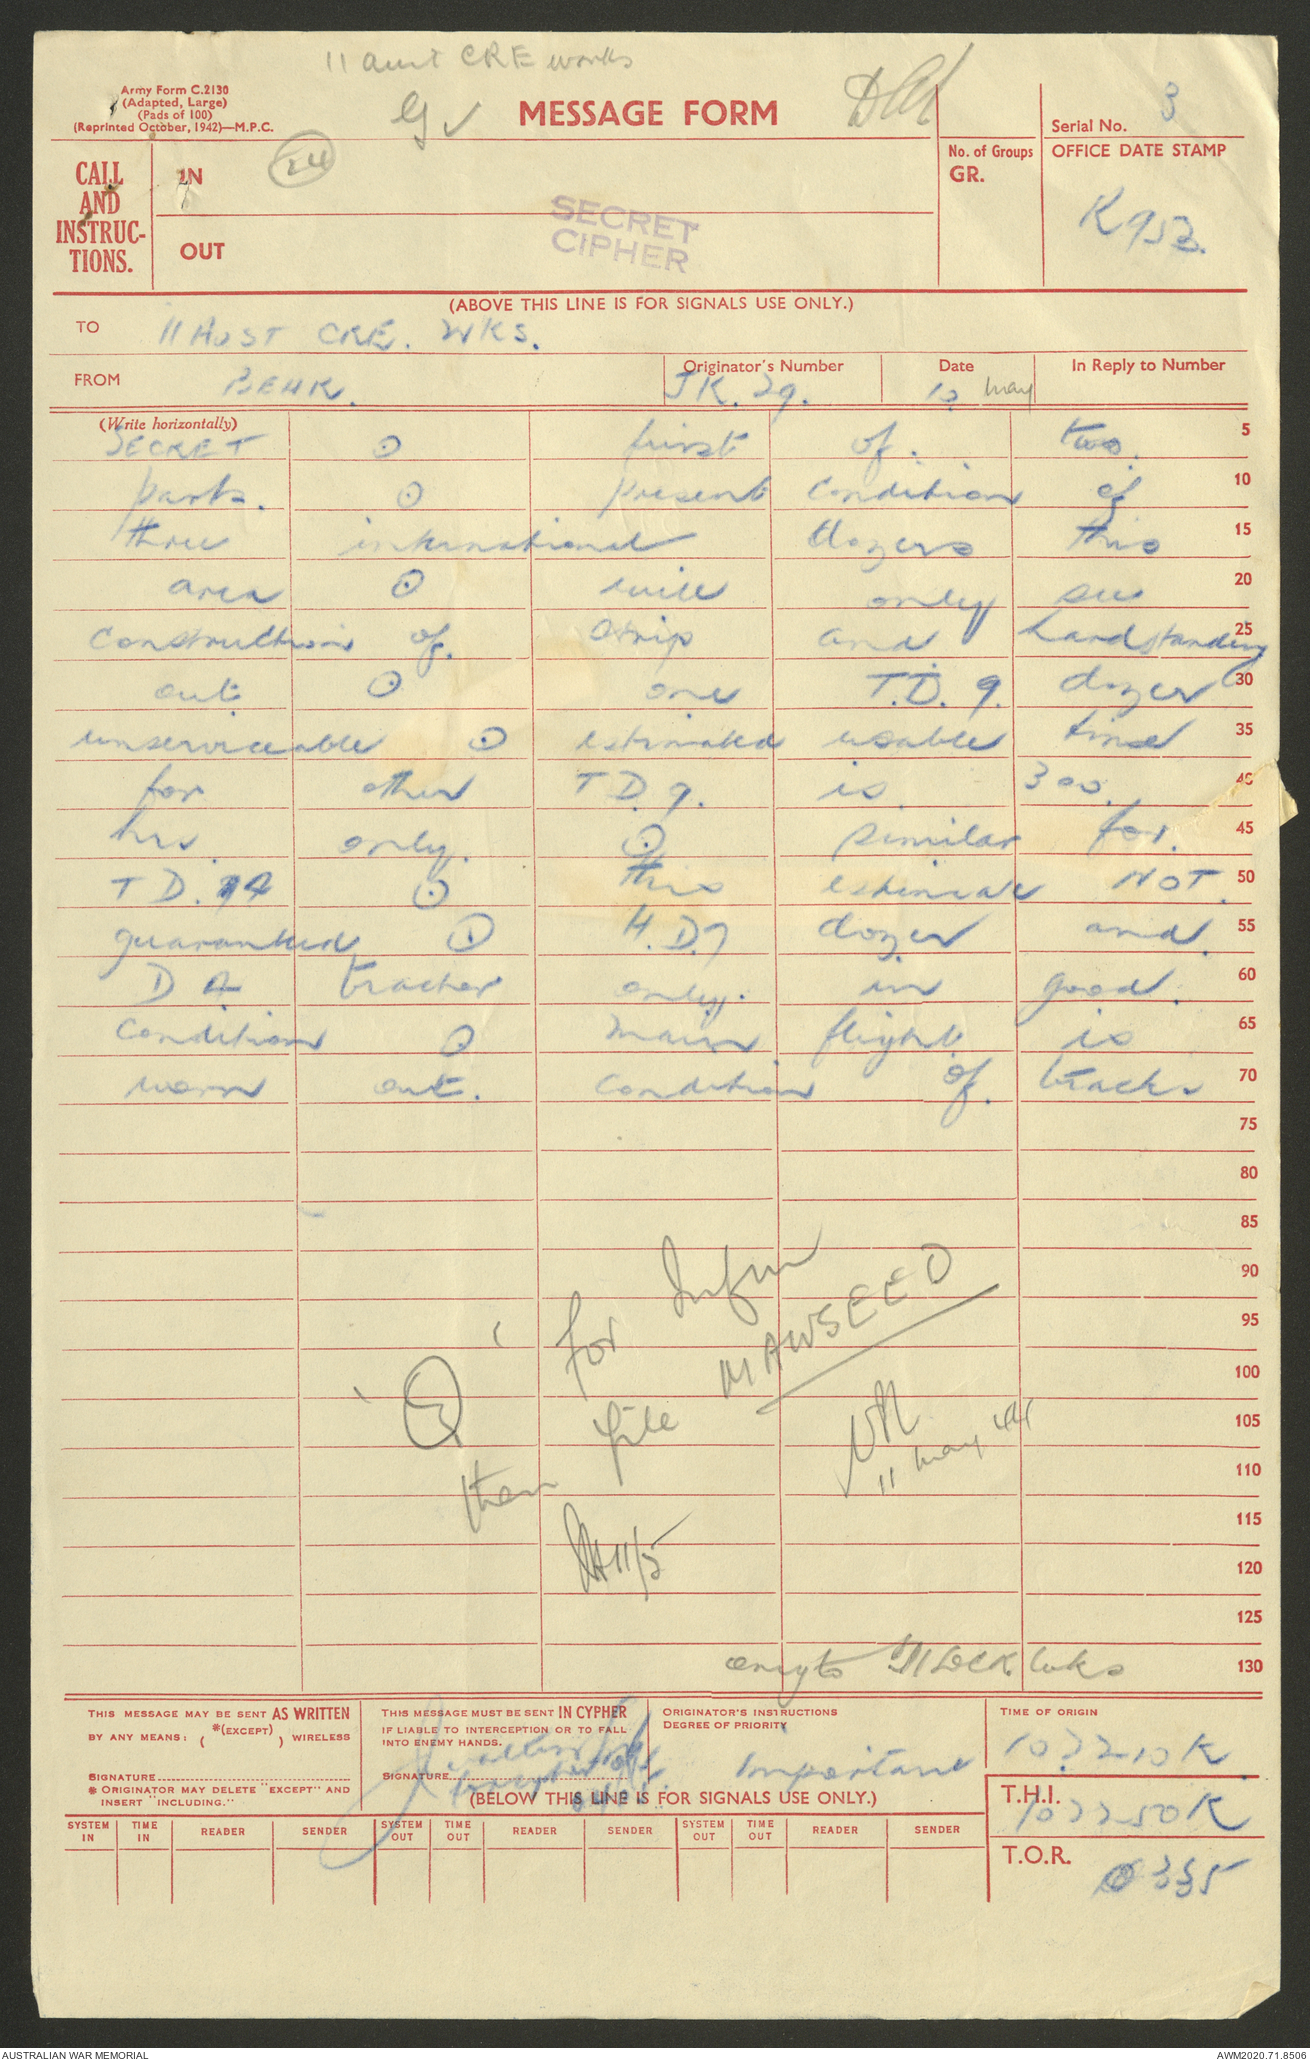 11 aust CRE works
Army Form C.2130
(Adapted, Large)
(Pads of 100)
(Reprinted October, 1942)—M.P.C.
MESSAGE FORM
Serial No. 3
CALL
AND
INSTRUC-
TIONS.
IN
24
OUT
SECRET
CIPHER
No. of Groups
GR.
OFFICE DATE STAMP
K953.
(ABOVE THIS LINE IS FOR SIGNALS USE ONLY.)
TO 11 AUST CRE. WKS.
FROM
Originator's Number
JK. 29.
Date
10 May
In Reply to Number
(Write horizontally)
SECRET ⊙ first of. two. 5
parts. ⊙ present condition of 10
three international dozers this 15
area ⊙ will only see 20
construction of. strip and hardstanding 25
out. ⊙ one T.D. 9. dozer 30
unserviceable ⊙ estimated usable time 35
for other T D. 9. is. 300. 40
hrs. only. ⊙ similar for. 45
T D. 14 ⊙ this estimate NOT. 50
guaranteed ⊙ H. D7 dozer and. 55
D 4 tractor only. in good. 60
condition ⊙ main flight. is 65
worn out. condition of. tracks 70
75
80
85
90
95
100
105
110
115
120
125
130
Q for Infm
MAWSEED
then file
11 May 44
11/5
Wks
THIS MESSAGE MAY BE SENT AS WRITTEN
BY ANY MEANS: ( *(EXCEPT) ) WIRELESS
SIGNATURE
* ORIGINATOR MAY DELETE "EXCEPT" AND
INSERT "INCLUDING."
THIS MESSAGE MUST BE SENT IN CYPHER
IF LIABLE TO INTERCEPTION OR TO FALL
INTO ENEMY HANDS.
SIGNATURE
ORIGINATOR'S INSTRUCTIONS
DEGREE OF PRIORITY
Important
TIME OF ORIGIN
102210K
(BELOW THIS LINE IS FOR SIGNALS USE ONLY.)
T.H.I.
102250K
SYSTEM IN TIME IN READER SENDER SYSTEM OUT TIME OUT READER SENDER SYSTEM OUT TIME OUT READER SENDER
T.O.R.
0335
AUSTRALIAN WAR MEMORIAL
AWM2020.71.8506